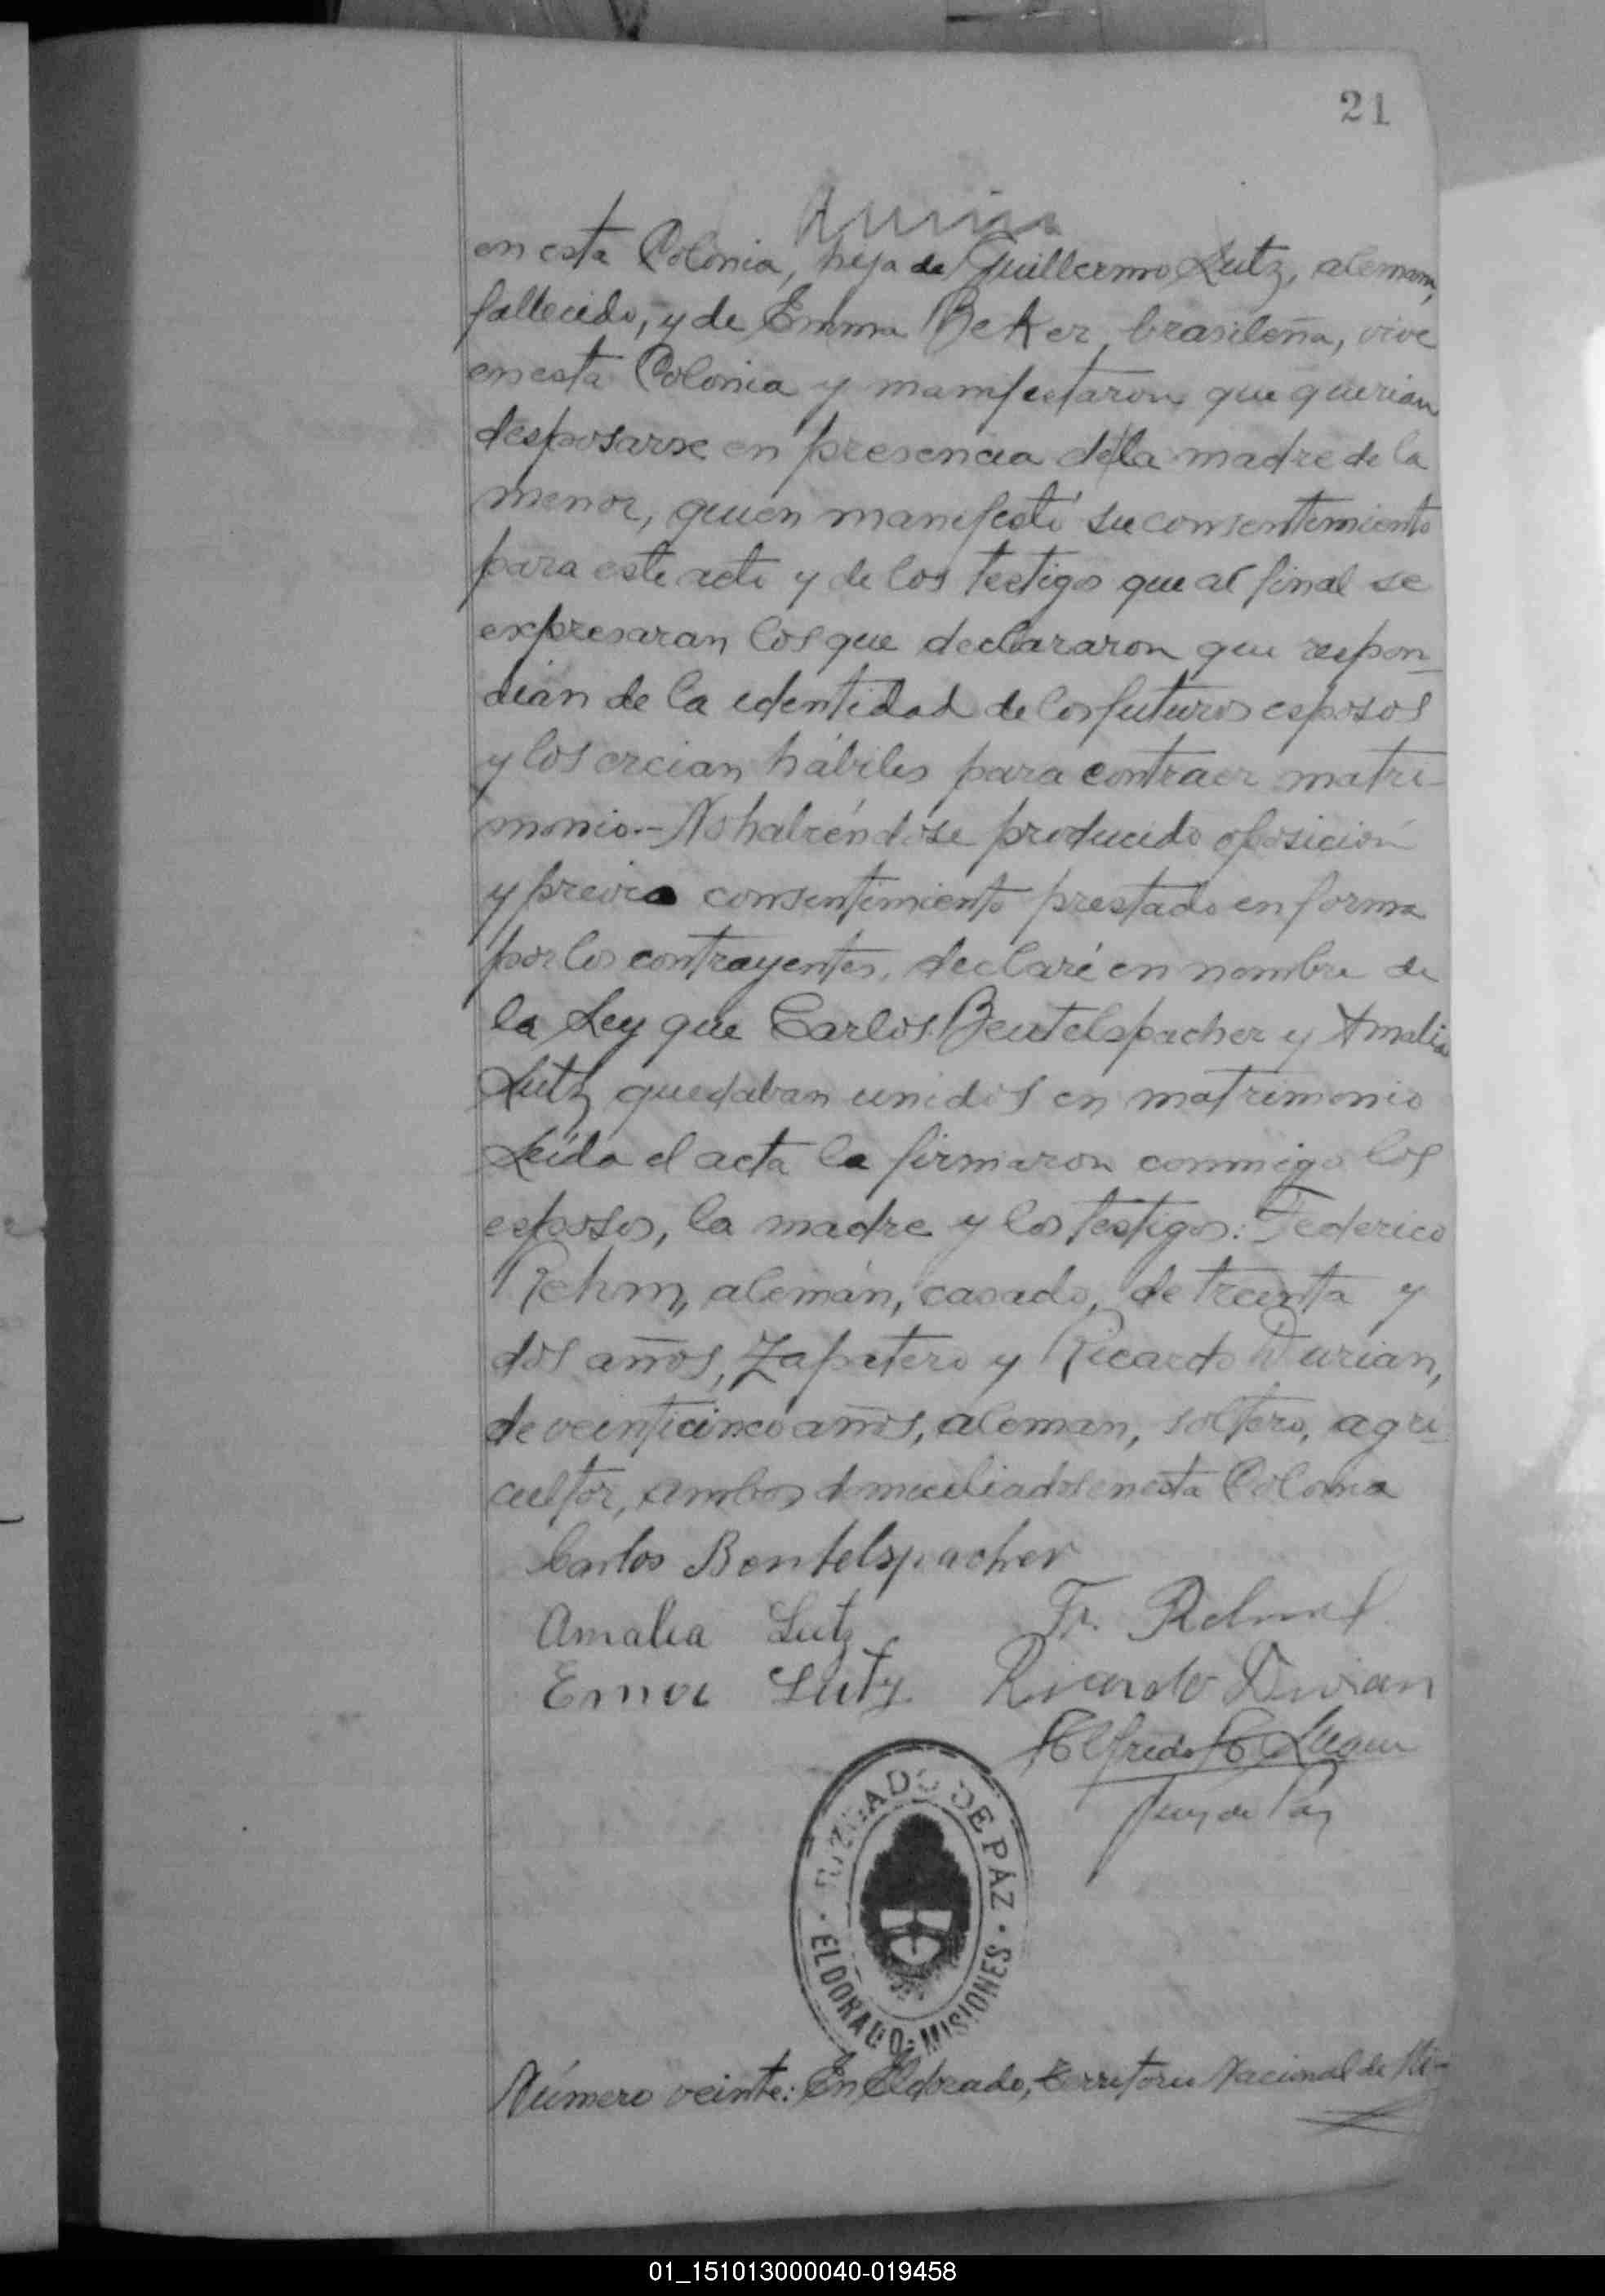 21
en esta Colonia, hija de Guillermo Lutz, aleman,
fallecido, y de Emma Beker, brasileña, vive
en esta Colonia y manifestaron que querian
desposarse en presencia de la madre de la
menor, quien manifestó su consentimiento
para este acto y de los testigos que al final se
expresaran los que declararon que respon-
dian de la identidad de los futuros esposos
y los creian hábiles para contraer matri-
monio.- No habiéndose producido oposición
y previo consentimiento prestado en forma
por los contrayentes, declaré en nombre de
la Ley que Carlos Beutelspacher y Amalia
Lutz quedaban unidos en matrimonio
Leída el acta la firmaron conmigo los
esposos, la madre y los testigos: Federico
Rehm, alemán, casado, de treinta y
dos años, Zapatero y Ricardo Durian,
de veinticinco años, aleman, soltero, agri-
cultor, ambos domiciliados en esta Colonia
Carlos Beutelspacher
Amalia Lutz Fr.
Emma Lutz Ricardo Durian
Alfredo
Juez de Paz
JUZGADO DE PÁZ
ELDORADO-MISIONES
Número veinte: En Eldorado, territorio Nacional de Mi-
01_151013000040-019458